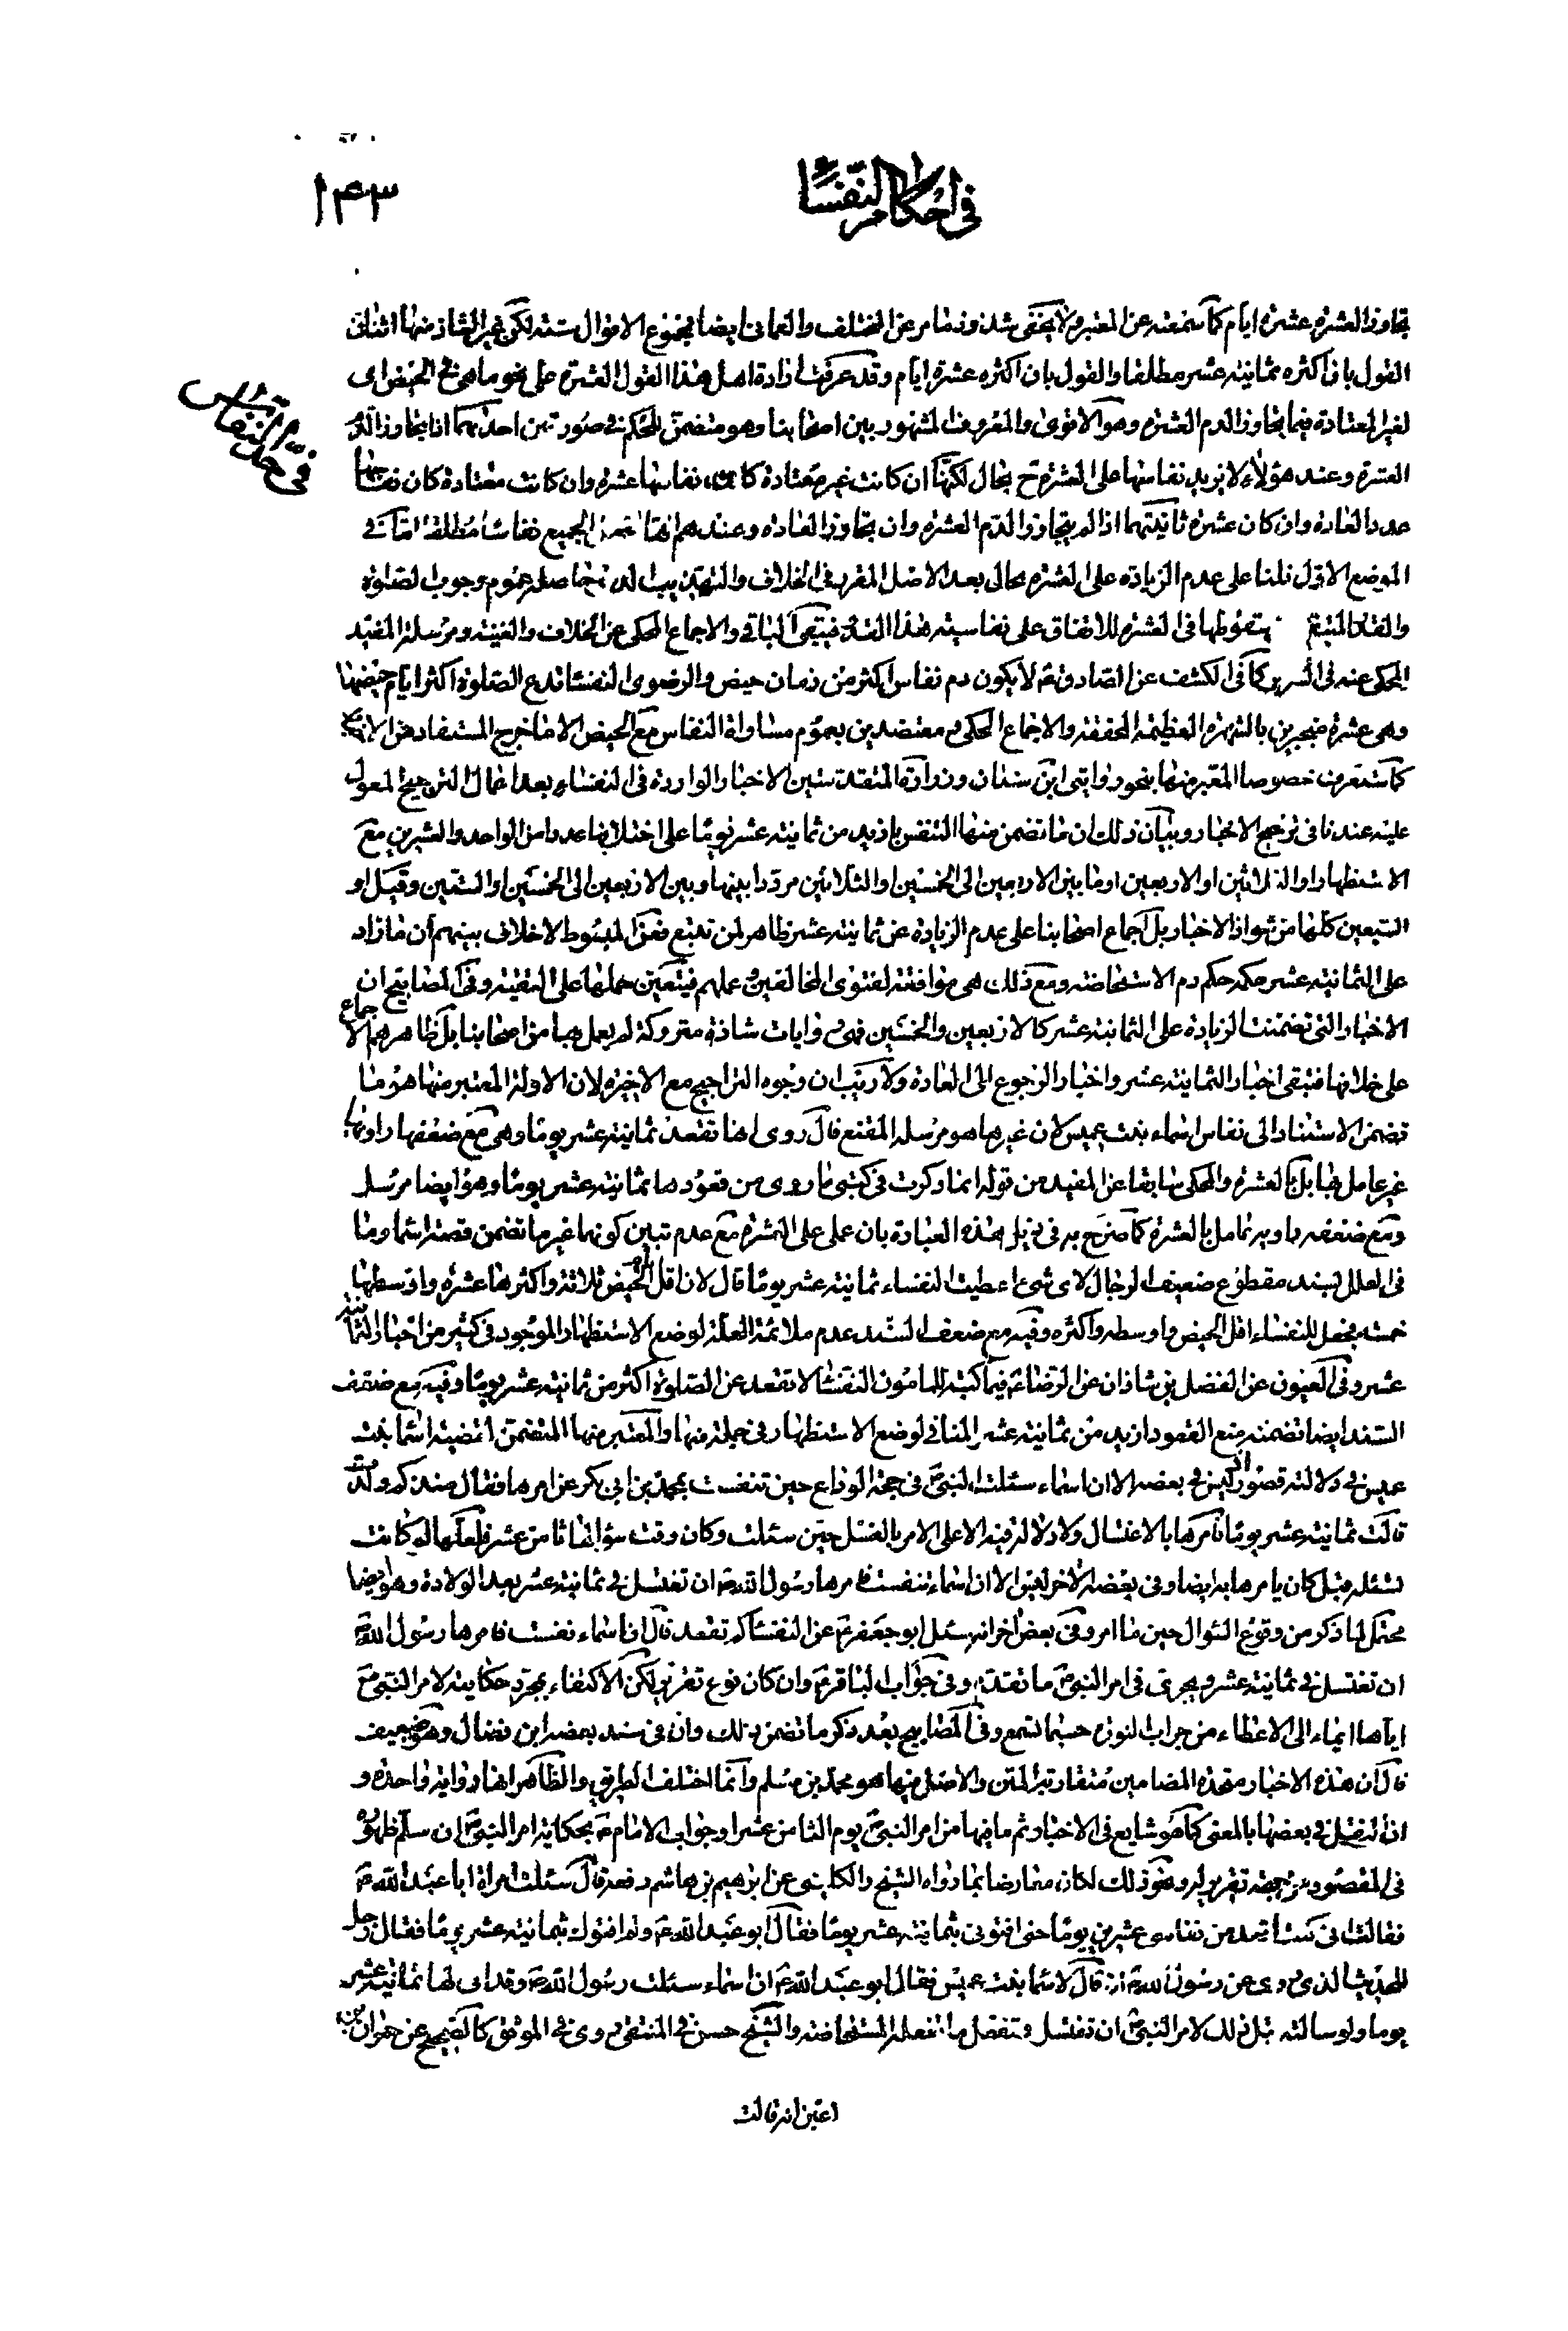 في احكام النفسا
١۴٣
في حد النفاس
تجاوز العشرة عشرة ايام كما سمعته عن المعتبر ولا يخفى شذوذ ما مر عن المختلف والعماني ايضا فمجموع الاقوال ستة لكن غير الشاذ منها اثنان
القول بان اكثره ثمانية عشر مطلقا والقول بان اكثره عشرة ايام وقد عرفت ارادة اهل هذا القول العشرة على نحو ما هي في الحيض اي
لغير المعتادة فيما تجاوز الدم العشرة وهو الاقوى والمعروف المشهور بين اصحابنا وهو متضمن للحكم في صورتين احديهما اذا تجاوز الدم
العشرة وعند هؤلاء لا يزيد نفاسها على العشرة ح بحال لكنها ان كانت غير معتادة كان نفاسها عشرة وان كانت معتادة كان نفاسها
عدد العادة وان كان عشرة ثانيتهما اذا لم يتجاوز الدم العشرة وان تجاوز العادة وعندهم الجميع نفاسا مطلقا اما في
الموضع الاول فلنا على عدم الزيادة على العشرة بحال بعد الاصل المقرر في الخلاف والتهذيب عموم وجوب الصلوة
والقدر المتيقن سقوطها في العشرة للاتفاق على نفاسية هذا القدر فيبقى الباقي والاجماع المحكي عن الخلاف والغنية ومرسلة المفيد
المحكي عنه في السرائر كما في الكشف عن الصادق ع لا يكون دم نفاس اكثر من زمان حيض والرضوي النفساء تدع الصلوة اكثر ايام حيضها
وهي عشرة منجبرين بالشهرة العظيمة المحققة والاجماع المحكي معتضدين بعموم مساواة النفاس مع الحيض الا ما خرج المستفاد من
كما ستعرف خصوصا المعتبر منها نحو روايتي ابن سنان وزرارة المتقدمتين الاخبار الواردة في النفساء بعد اعمال الترجيح المعول
عليه عندنا في ترجيح الاخبار وبيان ذلك ان ما تضمن منها التنفس بازيد من ثمانية عشر يوما على اختلافها عددا من الواحد والعشرين مع
الاستظهار او الثلاثين او الاربعين او ما بين الاربعين الى الخمسين او الثلاثين مرددا بينها وبين الاربعين الى الخمسين او الستين وقيل او
السبعين كلها من شواذ الاخبار بل اجماع اصحابنا على عدم الزيادة عن ثمانية عشر ظاهر لمن تتبع فعن المبسوط لا خلاف بينهم ان ما زاد
على الثمانية عشر حكمه حكم دم الاستحاضة ومع ذلك هي موافقة لفتوى المخالفين وعملهم فيتعين حملها على التقية وفي المصابيح ان
الاخبار التي تضمنت الزيادة على الثمانية عشر كالاربعين والخمسين فهي روايات شاذة متروكة لم يعمل بها من اصحابنا بل ظاهرهم الاجماع
على خلافها فتبقى اخبار الثمانية عشر واخبار الرجوع الى العادة ولا ريب ان وجوه التراجيح مع الاخيرة لان الاولة المعتبر منها هو ما
تضمن الاستناد الى نفاس اسماء بنت عميس لان غيرها هو مرسلة المقنع قال روى انها تقعد ثمانية عشر يوما وهي مع ضعفها راويها
غير عامل بها بل بالعشرة والمحكي سابقا عن المفيد من قوله انما ذكرت في كتبي ما روى من قعودها ثمانية عشر يوما وهو ايضا مرسل
ومع ضعفه راويه عامل بالعشرة كما صرح به في ذيل هذه العبارة بان عملي على العشرة مع عدم تبين كونها غير ما تضمن قصة اسماء وما
في العلل بسند مقطوع ضعيف الرجال لاي شيء اعطيت النفساء ثمانية عشر يوما قال لان اقل ايام الحيض ثلاثة واكثرها عشرة واوسطها
خمسة فجعل للنفساء اقل الحيض واوسطه واكثره وفيه مع ضعف السند عدم ملائمة العلة لوضع الاستظهار الموجود في كثير من اخبار الثمانية
عشر وفي العيون عن الفضل بن شاذان عن الرضا ع فيما كتبه للمامون النفساء لا تقعد عن الصلوة اكثر من ثمانية عشر يوما وفيه مع ضعف
السند ايضا تضمنه منع القعود ازيد من ثمانية عشر المنافي لوضع الاستظهار في جملة منها والمعتبر منها المتضمن لقضية اسماء بنت
عميس في دلالته قصور اذ ليس في بعضه الا ان اسماء سئلت النبي ص في حجة الوداع حين تنفست بمحمد بن ابي بكر عن امرها فقال منذ كم ولدت
قالت ثمانية عشر يوما فامرها بالاغتسال ولا دلالة فيه الا على الامر بالغسل حين سئلت وكان وقت سؤالها ثامن عشر فلعلها لو كانت
تسئله قبل كان يامرها به ايضا وفي بعضه الاخر ليس الا ان اسماء تنفست فامرها رسول الله ص ان تغتسل في ثمانية عشر بعد الولادة وهو ايضا
محتمل لما ذكر من وقوع السؤال حين ما امر وفي بعض اخر انه سئل ابو جعفر ع عن النفساء كم تقعد قال ان اسماء نفست فامرها رسول الله ص
ان تغتسل في ثمانية عشر ويجري في امر النبي ص ما تقدم وفي جواب الباقر ع وان كان نوع تقرير لكن الاكتفاء بمجرد حكاية لامر النبي ص
اياها ايماء الى الاعطاء من جراب النورة حسبما تسمع وفي المصابيح بعد ذكر ما تضمن ذلك وان في سند بعضه ابن فضال وهو ضعيف
قال ان هذه الاخبار متحدة المضامين متقاربة المتن والاصل فيها هو محمد بن مسلم وانما اختلف الطريق والظاهر انها رواية واحدة و
ان نقل في بعضها بالمعنى كما هو شايع في الاخبار ثم ما فيها من امر النبي ص يوم الثامن عشر او جواب الامام ع بحكاية امر النبي ص ان سلم ظهوره
في المقصود من جهة تقريره ونحو ذلك لكان معارضا بما رواه الشيخ والكليني عن ابرهيم بن هاشم رفعه قال سئلت امراة ابا عبد الله ع
فقالت اني كنت اقعد من نفاسي عشرين يوما حتى افتوني بثمانية عشر يوما فقال ابو عبد الله ع ولم افتوك بثمانية عشر يوما فقال رجل
للحديث الذي روى عن رسول الله ص انه قال لاسماء بنت عميس فقال ابو عبد الله ع ان اسماء سئلت رسول الله ص وقد اتى لها ثمانية عشر
يوما ولو سالته قبل ذلك لامر النبي ص ان تغتسل وتفعل ما تفعله المستحاضة والشيخ حسن في المنتقى روى في الموثق كالصحيح عن حمران بن
اعين انه قالت